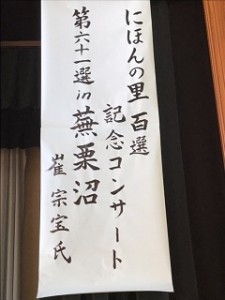 にほんの里百選
記念コンサート
第六十一選in蕪栗沼
崔宗宝氏